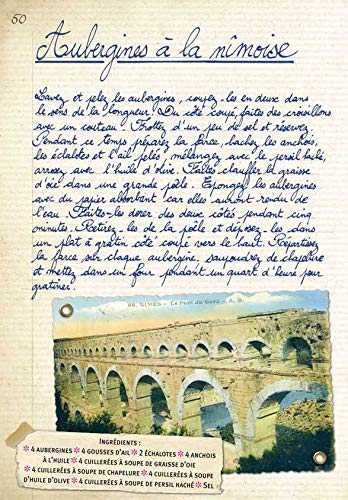 50
Aubergines à la nîmoise
Lavez et pelez les aubergines, coupez-les en deux dans
le sens de la longueur. Du côté coupé, faites des croisillons
avec un couteau. Frottez d'un peu de sel et réservez.
Pendant ce temps préparez la farce, hachez les anchois,
les échalotes et l'ail pelés, mélangez avec le persil haché,
arrosez avec l'huile d'olive. Faites chauffer la graisse
d'oie dans une grande poêle. Épongez les aubergines
avec du papier absorbant car elles auront rendu de
l'eau. Faites-les dorer des deux côtés pendant cinq
minutes. Retirez-les de la poêle et déposez-les dans
un plat à gratin côté coupé vers le haut. Répartissez
la farce sur chaque aubergine, saupoudrez de chapelure
et mettez dans un four pendant un quart d'heure pour
gratiner.
NIMES - Le Pont du Gard
INGRÉDIENTS :
* 4 AUBERGINES * 4 GOUSSES D'AIL * 2 ÉCHALOTES * 4 ANCHOIS
À L'HUILE * 4 CUILLERÉES À SOUPE DE GRAISSE D'OIE
* 4 CUILLERÉES À SOUPE DE CHAPELURE * 4 CUILLERÉES À SOUPE
D'HUILE D'OLIVE * 4 CUILLERÉES À SOUPE DE PERSIL HACHÉ * SEL